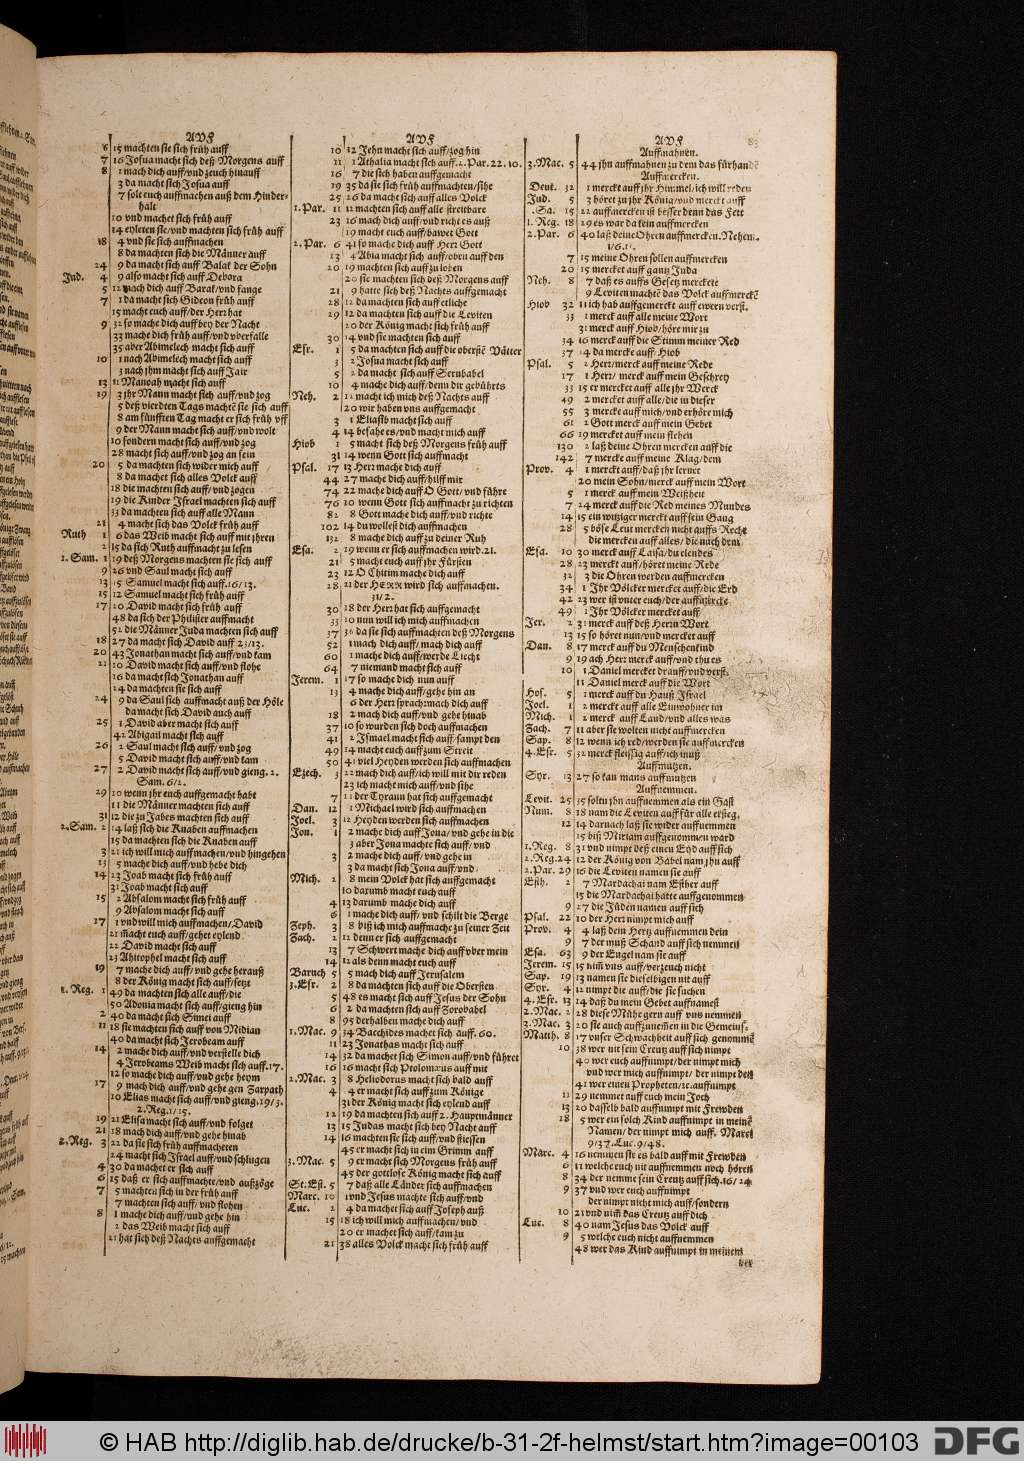 AVF
6 15 machten sie sich früh auff
7 16 Josua macht sich deß Morgens auff
8 1 mach dich auff/vnd zeuch hinauff
3 da macht sich Josua auff
7 solt euch auffmachen auß dem Hinder-
halt
10 vnd machet sich früh auff
14 eyleten sie/vnd machten sich früh auff
18 4 vnd sie sich auffmachen
8 da machten sich die Männer auff
24 9 da macht sich auff Balak der Sohn
Jud. 4 9 also macht sich auff Debora
5 12 mach dich auff Barak/vnd fange
7 1 da macht sich Gideon früh auff
15 macht euch auff/der Herr hat
9 32 so mache dich auff bey der Nacht
33 mache dich früh auff/vnd vberfalle
35 aber Abimelech macht sich auff
10 1 nach Abimelech macht sich auff
3 nach jhm macht sich auff Jair
13 11 Manoah macht sich auff
19 3 jhr Mann macht sich auff/vnd zog
5 deß vierdten Tags machtē sie sich auff
8 am fünfften Tag macht er sich früh vff
9 der Mann macht sich auff/vnd wolt
10 sondern macht sich auff/vnd zog
28 macht sich auff/vnd zog an sein
20 5 da machten sich wider mich auff
8 da machet sich alles Volck auff
18 die machten sich auff/vnd zogen
19 die Kinder Israel machten sich auff
33 da machten sich auff alle Mann
21 4 macht sich das Volck früh auff
Ruth 1 6 das Weib macht sich auff mit jhren
2 15 da sich Ruth auffmacht zu lesen
1. Sam. 1 19 deß Morgens machten sie sich auff
9 26 vnd Saul macht sich auff
13 15 Samuel macht sich auff. 16/13.
15 12 Samuel macht sich früh auff
17 20 David macht sich früh auff
48 da sich der Philister auffmacht
52 die Männer Juda machten sich auff
18 27 da macht sich David auff 23/13.
20 43 Jonathan macht sich auff/vnd kam
21 10 David macht sich auff/vnd flohe
16 da macht sich Jonathan auff
24 da machten sie sich auff
24 9 da Saul sich auffmacht auß der Höle
da macht sich David auch auff
25 1 David aber macht sich auff
42 Abigail macht sich auff
26 2 Saul macht sich auff/vnd zog
5 David macht sich auff/vnd kam
27 2 David macht sich auff/vnd gieng. 2.
Sam. 6/2.
29 10 wenn jhr euch auffgemacht habt
11 die Männer machten sich auff
31 12 die zu Jabes machten sich auff
2. Sam. 2 14 laß sich die Knaben auffmachen
15 da machten sich die Knaben auff
3 21 ich will mich auffmachen/vnd hingehen
13 5 mache dich auff/vnd hebe dich
14 23 Joab macht sich früh auff
31 Joab macht sich auff
15 2 Absalom macht sich früh auff
9 Absalom macht sich auff
17 1 vnd will mich auffmachen/David
21 macht euch auff/gehet eylend
22 David macht sich auff
23 Ahitophel macht sich auff
19 7 mache dich auff/vnd gehe herauß
8 der König macht sich auff/setzt
1. Reg. 1 49 da machten sich alle auff/die
50 Adonia macht sich auff/gieng hin
2 40 da macht sich Simei auff
11 18 sie machten sich auff von Midian
40 da macht sich Jerobeam auff
14 2 mache dich auff/vnd verstelle dich
4 Jerobeams Weib macht sich auff. 17.
12 so mache dich auff/vnd gehe heym
17 9 mach dich auff/vnd gehe gen Zarpath
10 Elias macht sich auff/vnd gieng. 19/3.
2. Reg. 1/15.
19 21 Elisa macht sich auff/vnd folget
21 18 mach dich auff/vnd gehe hinab
2. Reg. 3 22 da sie sich früh auffmacheten
24 macht sich Israel auff/vnd schlugen
4 30 da machet er sich auff
6 15 daß er sich auffmachte/vnd außzöge
7 5 machten sich in der früh auff
7 machten sich auff/vnd flohen
8 1 mache dich auff/vnd gehe hin
2 das Weib macht sich auff
21 hat sich deß Nachts auffgemacht
AVF
10 12 Jehu macht sich auff/zog hin
11 1 Athalia macht sich auff. 2. Par. 22. 10.
16 7 die sich haben auffgemacht
19 35 da sie sich früh auffmachten/sihe
25 26 da macht sich auff alles Volck
1. Par. 11 12 machten sich auff alle streitbare
23 16 mach dich auff/vnd richt es auß
19 macht euch auff/bawet Gott
2. Par. 6 41 so mache dich auff Herr Gott
13 4 Abia macht sich auff/oben auff den
20 19 machten sich auff zu loben
20 sie machten sich deß Morgens auff
21 9 hatte sich deß Nachts auffgemacht
28 12 da machten sich auff etliche
29 12 da machten sich auff die Leviten
20 der König macht sich früh auff
30 14 vnd sie machten sich auff
Esr. 1 5 da machten sich auff die oberstē Vätter
3 2 Josua macht sich auff
5 2 da macht sich auff Serubabel
10 4 mache dich auff/denn dir gebührts
Neh. 2 11 macht ich mich deß Nachts auff
20 wir haben vns auffgemacht
3 1 Eliasib macht sich auff
4 14 besahe es/vnd macht mich auff
Hiob 1 5 macht sich deß Morgens früh auff
31 14 wenn Gott sich auffmacht
Psal. 17 13 Herr mache dich auff
44 27 mache dich auff/hilff mir
74 22 mache dich auff O Gott/vnd führe
76 10 wenn Gott sich auffmacht zu richten
82 8 Gott mache dich auff/vnd richte
102 14 du wollest dich auffmachen
132 8 mache dich auff zu deiner Ruh
Esa. 2 19 wenn er sich auffmachen wird. 21.
21 5 macht euch auff jhr Fürsten
23 12 O Chitim mache dich auff
28 21 der HERR wird sich auffmachen.
31/2.
30 18 der Herr hat sich auffgemacht
33 10 nun will ich mich auffmachen
37 36 da sie sich auffmachten deß Morgens
52 1 mach dich auff/mach dich auff
60 1 mache dich auff/werde Liecht
64 7 niemand macht sich auff
Jerem. 1 17 so mache dich nun auff
13 4 mache dich auff/gehe hin an
6 der Herr sprach: mach dich auff
18 2 mach dich auff/vnd gehe hinab
37 10 so wurden sich doch auffmachen
41 2 Ismael macht sich auff/sampt den
49 14 macht euch auff zum Streit
50 41 viel Heyden werden sich auffmachen
Ezech. 3 22 mach dich auff/ich will mit dir reden
23 ich macht mich auff/vnd sihe
7 11 der Tyrann hat sich auffgemacht
Dan. 12 1 Michael wird sich auffmachen
Joel. 3 12 Heyden werden sich auffmachen
Jon. 1 2 mache dich auff Jona/vnd gehe in die
3 aber Jona machte sich auff/vnd
3 2 mache dich auff/vnd gehe in
3 da macht sich Jona auff/vnd
Mich. 2 8 mein Volck hat sich auffgemacht
10 darumb macht euch auff
4 13 darumb mache dich auff
6 1 mache dich auff/vnd schilt die Berge
Zeph. 3 8 biß ich mich auffmache zu seiner Zeit
Zach. 2 12 denn er sich auffgemacht
13 7 Schwert mache dich auff vber mein
14 12 als denn macht euch auff
Baruch 5 5 mach dich auff Jerusalem
3. Esr. 2 8 da machten sich auff die Obersten
5 48 es macht sich auff Jesus der Sohn
6 2 da machten sich auff Zorobabel
8 95 derhalben mache dich auff
1. Mac. 9 34 Bacchides machet sich auff. 60.
11 23 Jonathas macht sich auff
14 32 da machet sich Simon auff/vnd führet
16 16 macht sich Ptolomæus auff mit
2. Mac. 3 8 Heliodorus macht sich bald auff
4 4 er macht sich auff zum Könige
31 der König macht sich eylend auff
12 19 da machten sich auff 2. Hauptmänner
13 15 Judas macht sich bey Nacht auff
14 16 machten sie sich auff/vnd stiessen
45 er macht sich in eim Grimm auff
3. Mac. 5 9 er macht sich Morgens früh auff
45 der gottlose König macht sich auff
St. Est. 5 7 daß alle Länder sich auffmachen
Marc. 10 1 vnd Jesus machte sich auff/vnd
Luc. 2 4 da machet sich auff Joseph auß
15 18 ich will mich auffmachen/vnd
20 er machet sich auff/kam zu
21 38 alles Volck macht sich früh auff
AVF 83
Auffmahnen.
3. Mac. 5 44 jhn auffmahnen zu dem das fürhandē
Auffmercken.
Deut. 32 1 merckt auff jhr Himmel/ich will reden
Jud. 5 3 höret zu jhr König/vnd merckt auff
1. Sa. 15 22 auffmercken ist besser denn das Fett
1. Reg. 18 29 es war da kein auffmercken
2. Par. 6 40 laß deine Ohren auffmercken. Nehem.
1/6. 11.
7 15 meine Ohren sollen auffmercken
20 15 mercket auff gantz Juda
Neh. 8 7 daß es auffs Gesetz merckete
9 Leviten machtē das Volck auffmerckē
Hiob 32 11 ich hab auffgemerckt auff ewern verst.
33 1 merck auff alle meine Wort
31 merck auff Hiob/höre mir zu
34 16 merck auff die Stimm meiner Red
37 14 da mercke auff Hiob
Psal. 5 2 Herr/merck auff meine Rede
17 1 Herr/merck auff mein Geschrey
33 15 er mercket auff alle jhr Werck
49 2 mercket auff alle/die in dieser
55 3 mercke auff mich/vnd erhöre mich
61 2 Gott merck auff mein Gebet
66 19 mercket auff mein flehen
130 2 laß deine Ohren mercken auff die
142 7 mercke auff meine Klag/dem
Prov. 4 1 merckt auff/daß jhr lernet
20 mein Sohn/merck auff mein Wort
5 1 merck auff mein Weißheit
7 24 merck auff die Red meines Mundes
14 15 ein witziger merckt auff sein Gang
28 5 böse Leut mercken nicht auffs Recht
die mercken auff alles/die nach dem
Esa. 10 30 merck auff Laisa/du elendes
28 23 merckt auff/höret meine Rede
32 3 die Ohren werden auffmercken
34 1 Jhr Völcker mercket auff/die Erd
42 23 wer ist vnter euch/der auffmercke
49 1 Jhr Völcker mercket auff
Jer. 2 31 merck auff deß Herrn Wort
13 15 so höret nun/vnd mercket auff
Dan. 8 17 merck auff du Menschenkind
9 19 ach Herr merck auff/vnd thu es
10 1 Daniel mercket drauff/vnd verst.
11 Daniel merck auff die Wort
Hos. 5 1 merck auff du Hauß Israel
Joel. 1 2 mercket auff alle Einwohner im
Mich. 1 2 merck auff Land/vnd alles was
Zach. 7 11 aber sie wolten nicht auffmercken
Sap. 8 12 wenn ich red/werden sie auffmercken
4. Esr. 5 32 merck fleissig auff/ich muß
Auffmutzen.
Syr. 13 27 so kan mans auffmutzen
Auffnemmen.
Levit. 25 35 soltu jhn auffnemmen als ein Gast
Num. 8 18 nam die Leviten auff für alle erstg.
12 14 darnach laß sie wider auffnemmen
15 biß Mirjam auffgenommen ward
1. Reg. 8 31 vnd nimpt deß einen Eyd auff sich
2. Reg. 24 12 der König von Babel nam jhn auff
2. Par. 29 16 die Leviten namen sie auff
Esth. 2 7 Mardachai nam Esther auff
15 die Mardachai hatte auffgenommen
9 27 die Jüden namen auff sich
Psal. 22 10 der Herr nimpt mich auff
Prov. 4 4 laß dein Hertz auffnemmen dein
9 7 der muß Schand auff sich nemmen
Esa. 63 9 der Engel nam sie auff
Jerem. 15 15 nim vns auff/verzeuch nicht
Sap. 19 13 namen sie dieselbigen nit auff
Syr. 4 12 nimpt die auff/die sie suchen
4. Esr. 13 14 daß du mein Gebet auffnamest
2. Mac. 2 28 diese Mühe gern auff vns nemmen
3. Mac. 3 20 sie auch auffzunemen in die Gemeinf.
Matth. 8 17 vnser Schwachheit auff sich genommē
10 38 wer nit sein Creutz auff sich nimpt
40 wer euch auffnimpt/der nimpt mich
vnd wer mich auffnimpt/der nimpt den
41 wer einen Propheten/rc. auffnimpt
11 29 nemmet auff euch mein Joch
13 20 dasselb bald auffnimpt mit Frewden
18 5 wer ein solch Kind auffnimpt in meinē
Namen/der nimpt mich auff. Marci
9/37. Luc. 9/48.
Marc. 4 16 nemmen sie es bald auff mit Frewden
6 11 welche euch nit auffnemmen noch hören
8 34 der nemme sein Creutz auff sich. 16/24
9 37 vnd wer euch auffnimpt
der nimpt nicht mich auff/sondern
10 21 vnd nim das Creutz auff dich
Luc. 8 40 nam Jesus das Volck auff
9 5 welche euch nicht auffnemmen
48 wer das Kind auffnimpt in meinem
der
© HAB http://diglib.hab.de/drucke/b-31-2f-helmst/start.htm?image=00103
DFG